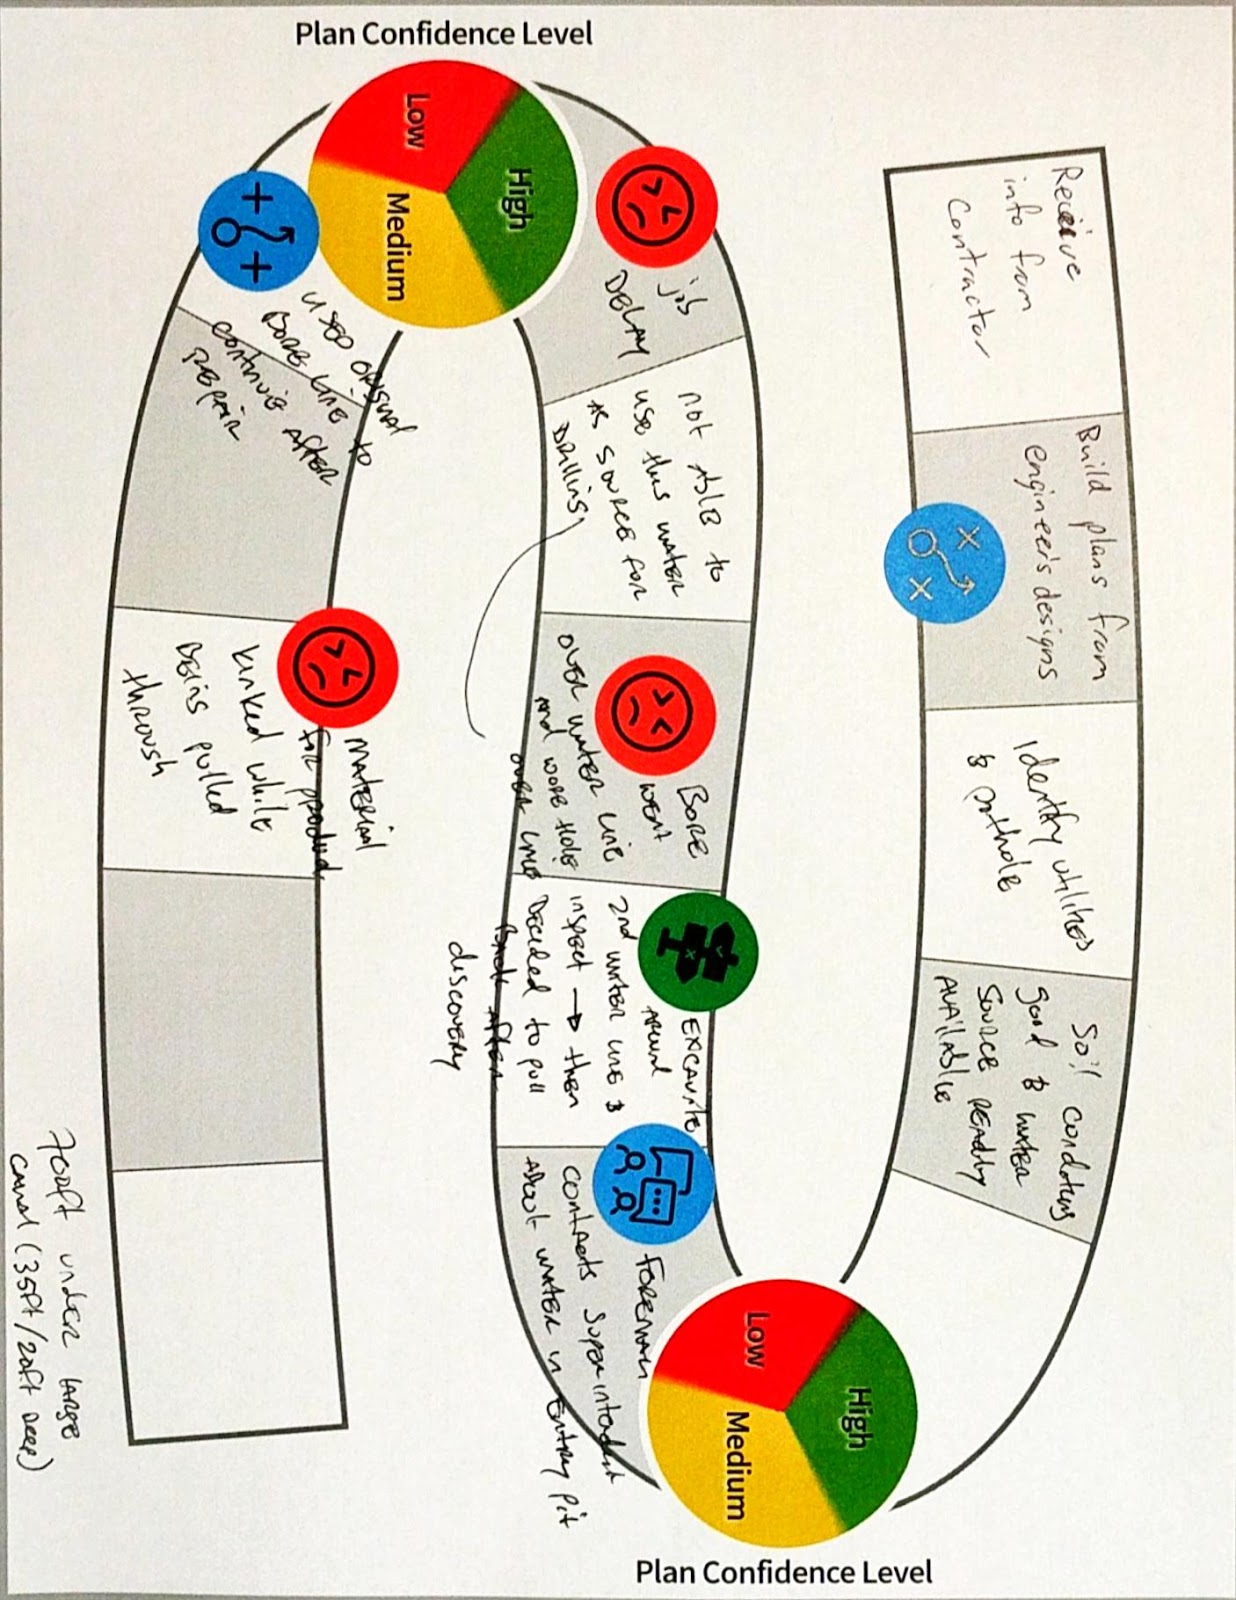 Receive
info from
Contractor
Build plans from
engineer's designs
Identify utilities
& pothole
Soil conditions
good & water
source readily
available
High
Low
Medium
Plan Confidence Level
Foreman
contacts superintendent
about water in entry pit
Excavate
around
2nd water line &
inspect → then
Decided to pull
Back after
discovery
Bore
went
over water line
and wore hole
over line
not able to
use this water
as source for
Drilling
job
DELAY
Plan Confidence Level
High
Low
Medium
used original
Bore line to
continue after
Repair
material
for product
kinked while
Being pulled
through
700ft under large
canal (35ft/20ft Deep)